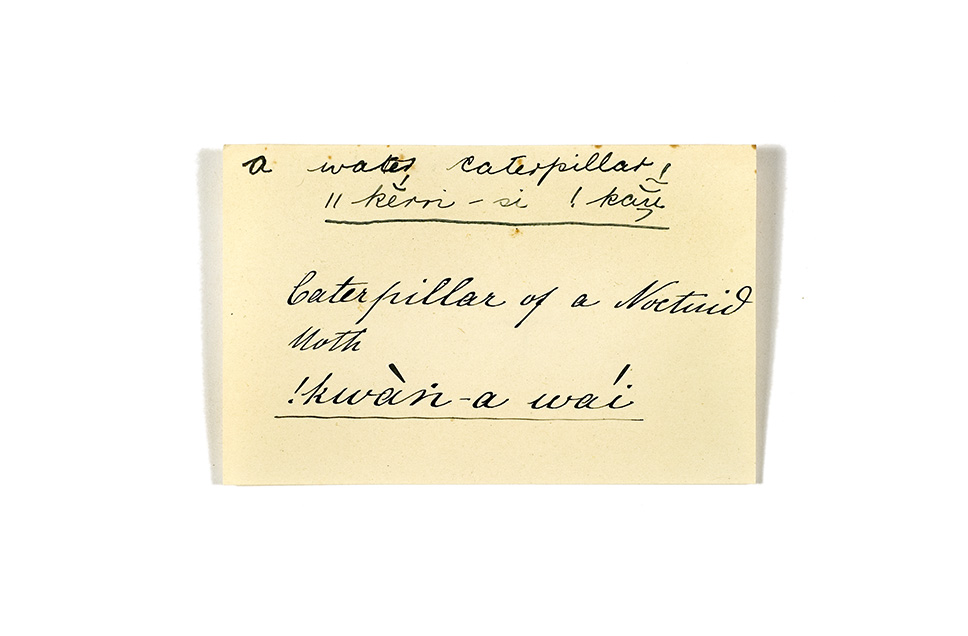 a water caterpillar!
" kĕrri - si ! kaŭ
Caterpillar of a Noctuid
Moth
!kwàṅ-a wái